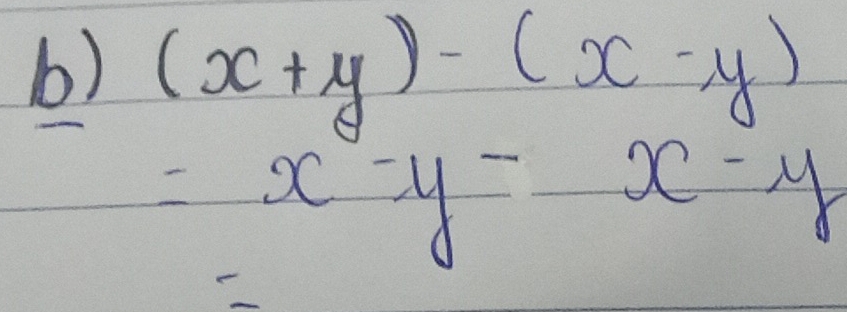 b) (x+y) - (x - y)
= x - y - x - y
=